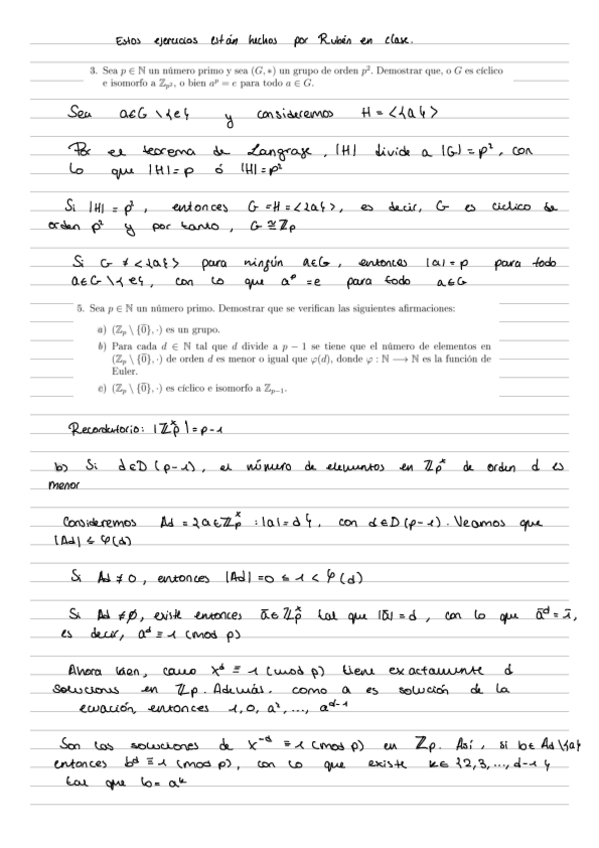 Estos ejercicios están hechos por Rubén en clase.
3. Sea p ∈ ℕ un número primo y sea (G, *) un grupo de orden p². Demostrar que, o G es cíclico
e isomorfo a ℤ_{p²}, o bien aᵖ = e para todo a ∈ G.
Sea a∈G \ {e} y consideremos H = <{a}>
Por el teorema de Langraje, |H| divide a |G| = p², con
lo que |H| = p ó |H| = p²
Si |H| = p², entonces G = H = <{a}>, es decir, G es cíclico de
orden p² y por tanto, G ≅ ℤp
Si G ≠ <{a}> para ningún a∈G, entonces |a| = p para todo
a∈G \ {e}, con lo que aᵖ = e para todo a∈G
5. Sea p ∈ ℕ un número primo. Demostrar que se verifican las siguientes afirmaciones:
a) (ℤp \ {0̄}, ·) es un grupo.
b) Para cada d ∈ ℕ tal que d divide a p − 1 se tiene que el número de elementos en
(ℤp \ {0̄}, ·) de orden d es menor o igual que φ(d), donde φ : ℕ ⟶ ℕ es la función de
Euler.
c) (ℤp \ {0̄}, ·) es cíclico e isomorfo a ℤ_{p−1}.
Recordatorio: |ℤp^x| = p-1
b) Si d∈D (p-1), el número de elementos en ℤp^x de orden d es
menor
Consideremos Ad = {a∈ℤp^x : |a| = d}, con d∈D (p-1). Veamos que
|Ad| ≤ φ(d)
Si Ad ≠ 0, entonces |Ad| = 0 ≤ 1 < φ(d)
Si Ad ≠ ∅, existe entonces ā∈ℤp^x tal que |ā| = d, con lo que ā^d = 1̄,
es decir, a^d ≡ 1 (mod p)
Ahora bien, como x^d ≡ 1 (mod p) tiene exactamente d
soluciones en ℤp. Además, como a es solución de la
ecuación, entonces 1, 0, a², ..., a^{d-1}
Son las soluciones de x^{-d} ≡ 1 (mod p) en ℤp. Así, si b∈Ad \{a}
entonces b^d ≡ 1 (mod p), con lo que existe k∈{2,3,...,d-1}
tal que b = a^k